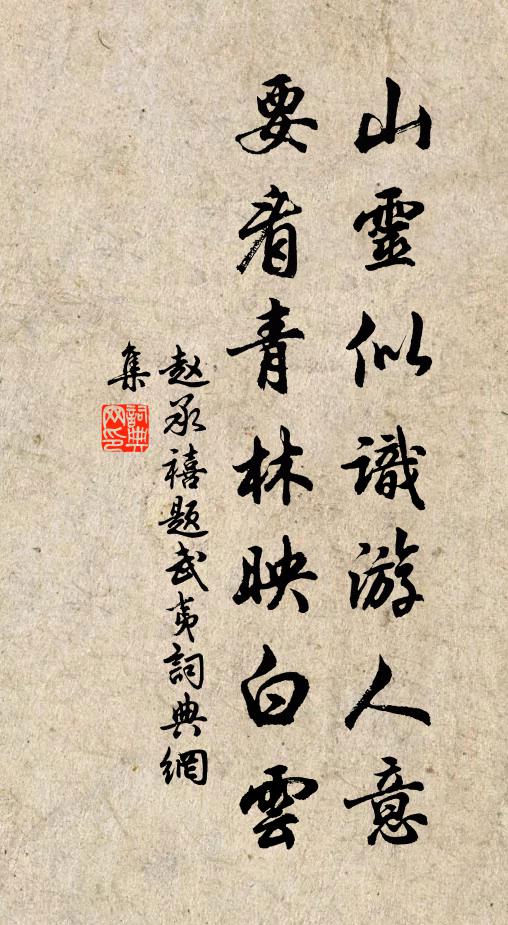 山靈似識游人意
要看青林映白雲
赵承禧题武夷詞典網
集
詞典网印